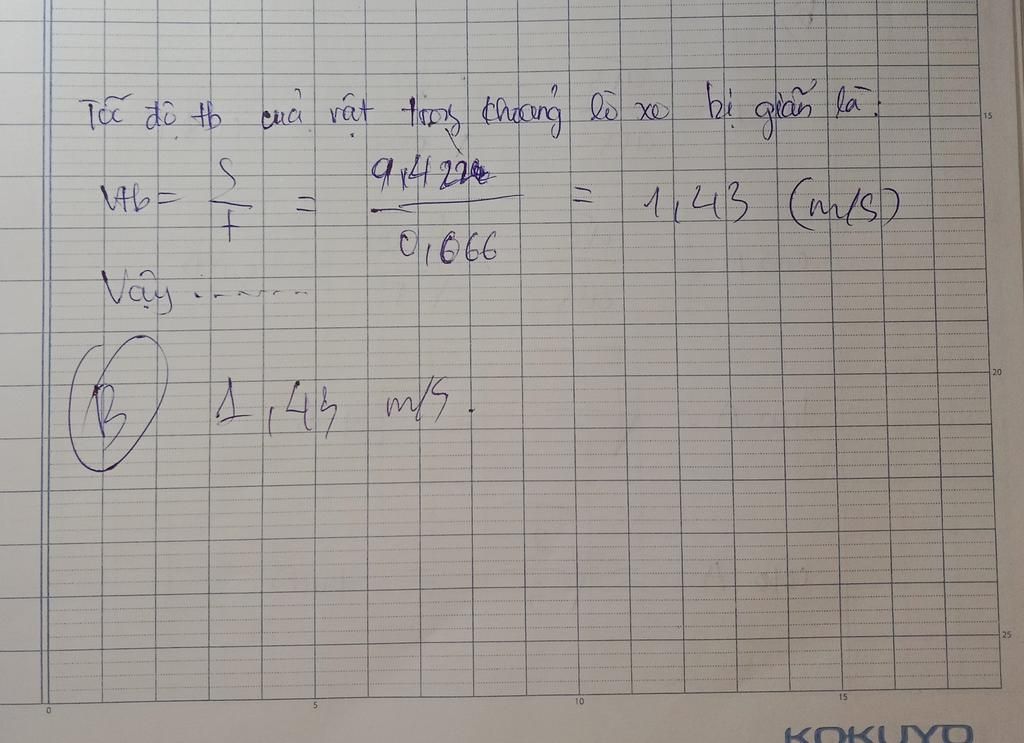 Tốc độ tb của vật trong khoảng lò xo bị giãn là:
Vtb = S/t = 9,422/0,066 = 1,43 (m/s)
Vậy .......
B 1,43 m/s.
15
20
25
0 5 10 15
KOKUYO